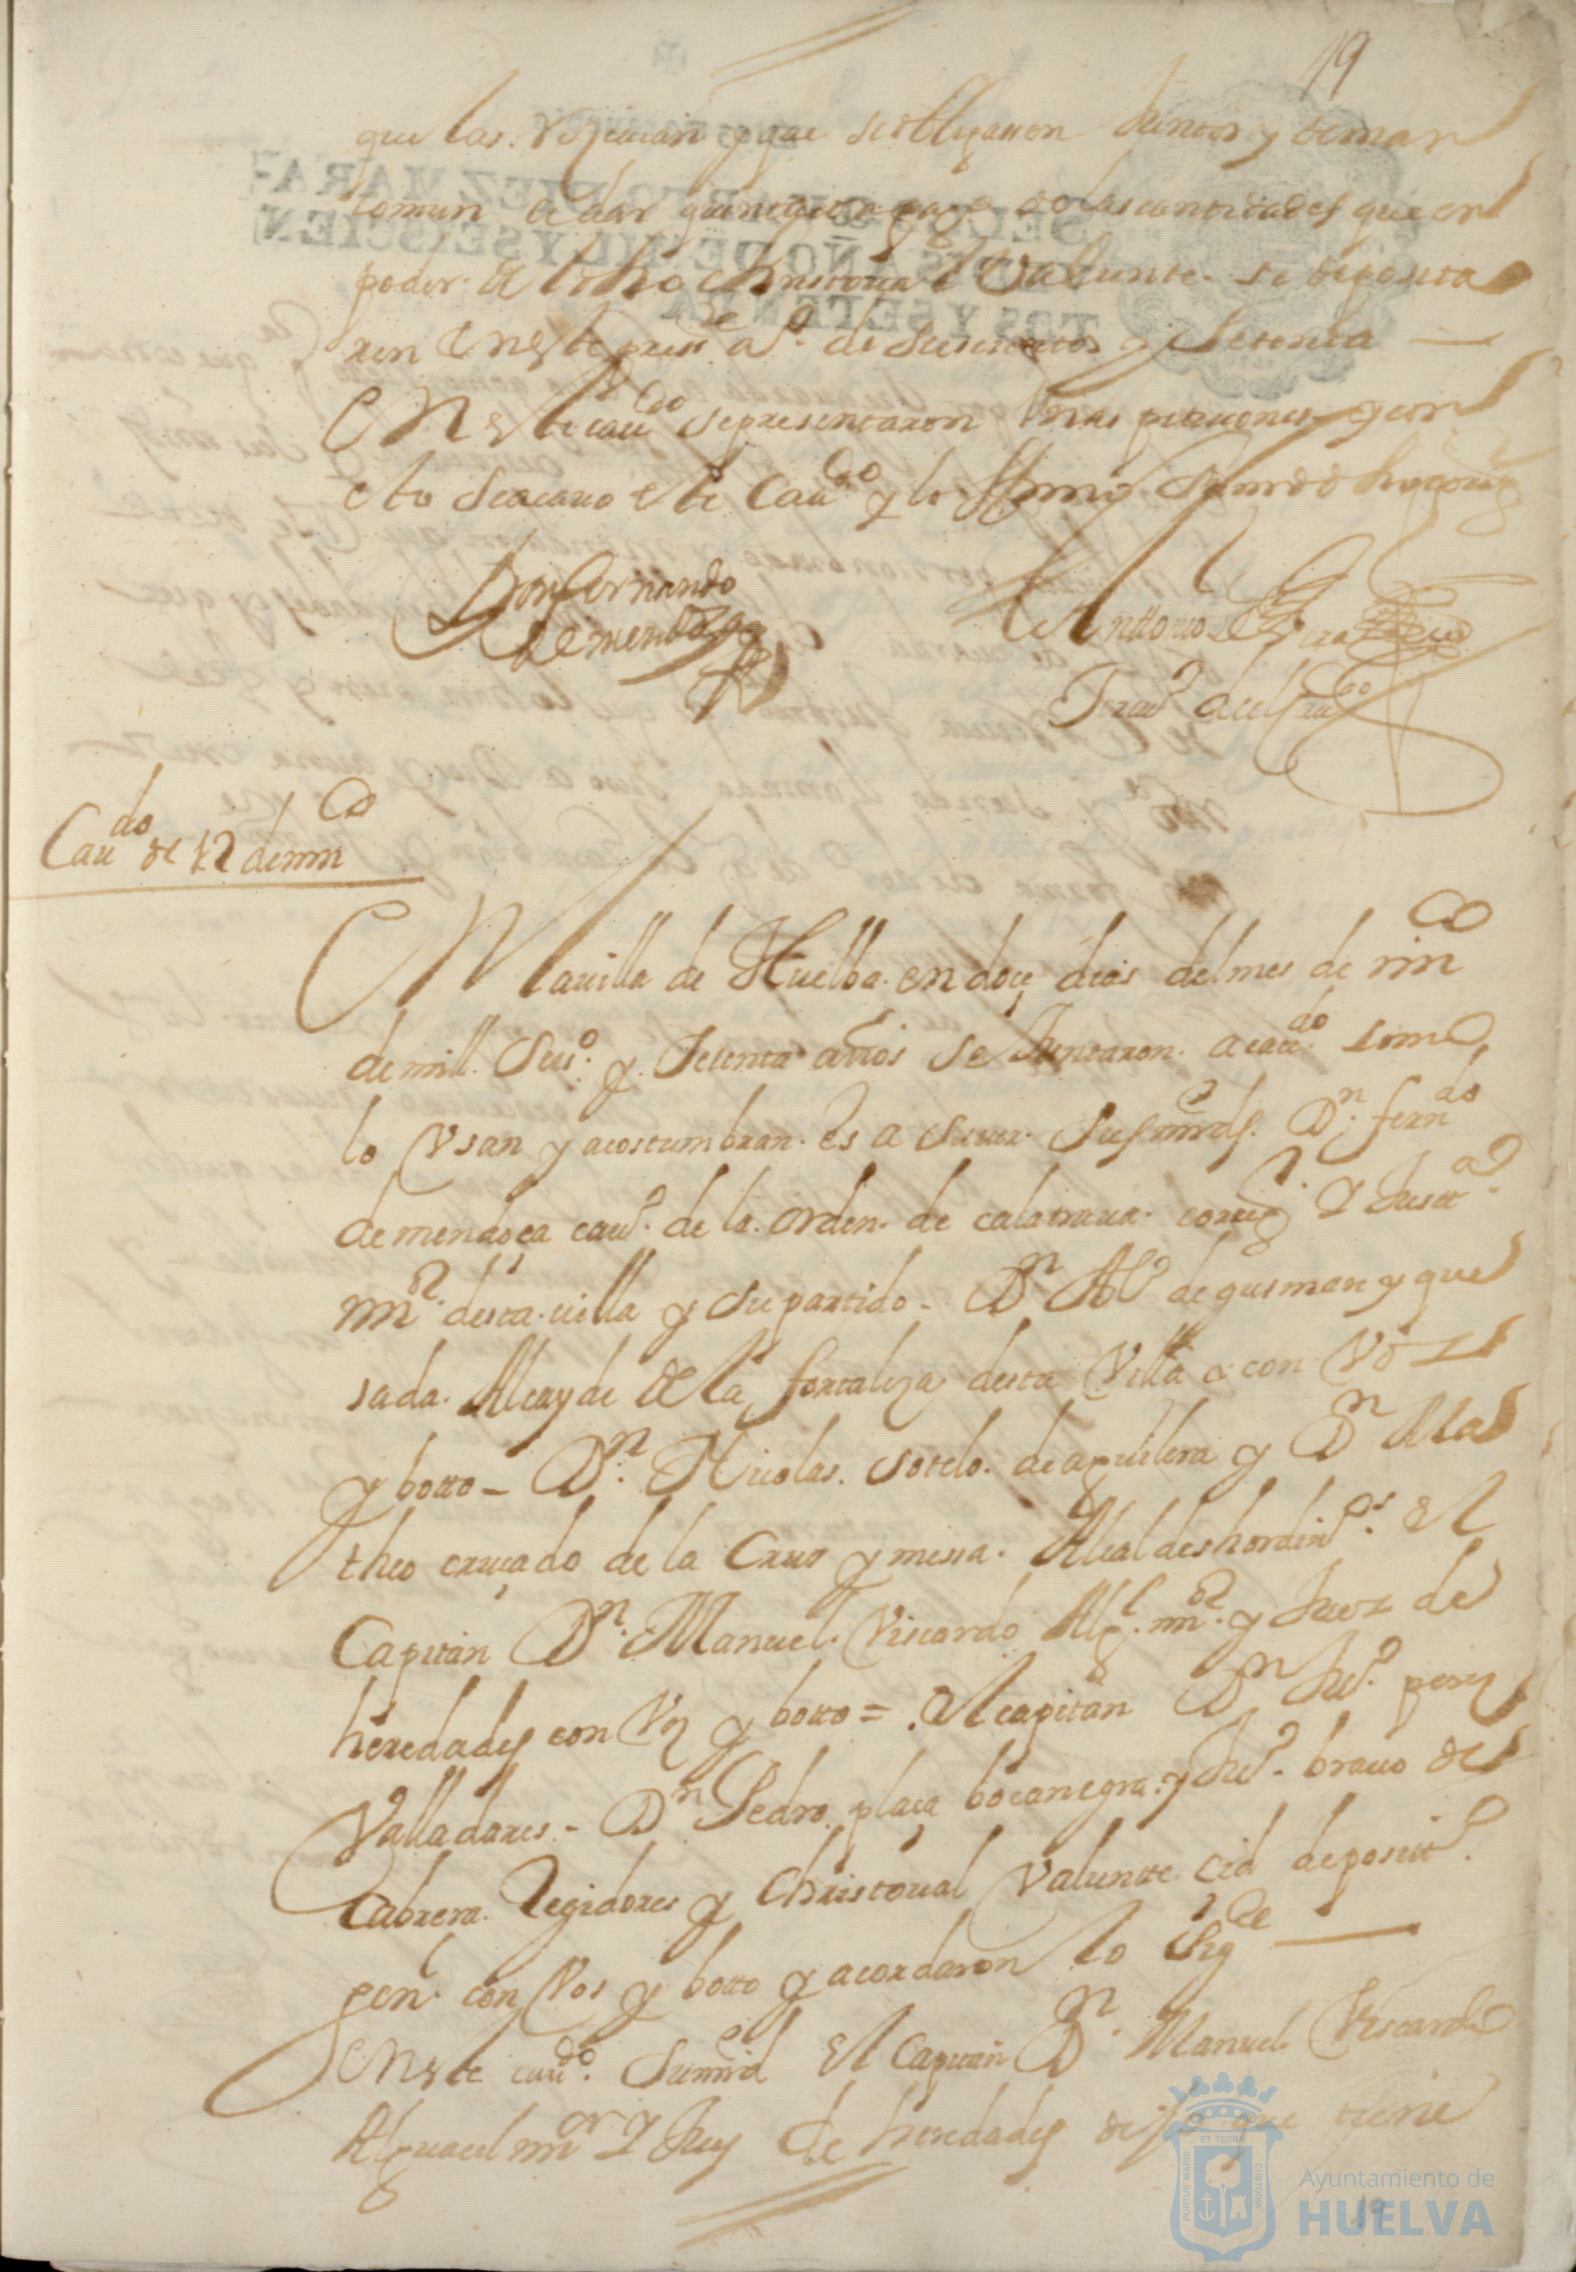 19
que las. y que se obligaron Juntos y de man
comun de dar quenta con pago de las cantidades que en
poder. del dho christoual Valiente. se deposita
ren En este press.te a.o de seiscientos y setenta
En este cau.do se presentaron Unas petiçiones y con
esto se acauo este Cau.do y lo firmo el
Don fernando
de mendoza
Antonio
Cau.do de 12 de m.co
En la uilla de Huelba. en doçe dias del mes de m.co
de mill. seis.o y. setenta años se Juntaron. a cau.do como
lo Vsan y acostumbran. es a sauer. Sus mrds. D.n fern.do
de mendoça cau.o de la. orden. de calatraua. correg.r y Justt.a
m.or desta. uilla y su partido - D.n Al.o de gusman y que
sada. Alcayde de la fortaleza desta Villa con Vo
z y botto - D.n Nicolas. sotelo. de aguilera y D.n Ma
theo cruçado de la Cruz y mesia. Alcaldes hordin.os El
Capitan D.n Manuel. Viscardo Alg.l m.or y Juez de
heredades con Vz y botto = El capitan D.n Ju.o perez
Valladares. - D.n Pedro plaça bocanegra. y Ju.o brauo de
Cabrera. Regidores y Christoual Valiente Cid depositt.o
gen.l con Vos y botto y acordaron lo sig.te
En este cau.do su mrd El Capitan D.n Manuel Viscardo
Alguacil m.or y Juez de heredades dijo que tiene
PORTUS MARIS ET TERRAE CUSTODIA
Ayuntamiento de
HUELVA